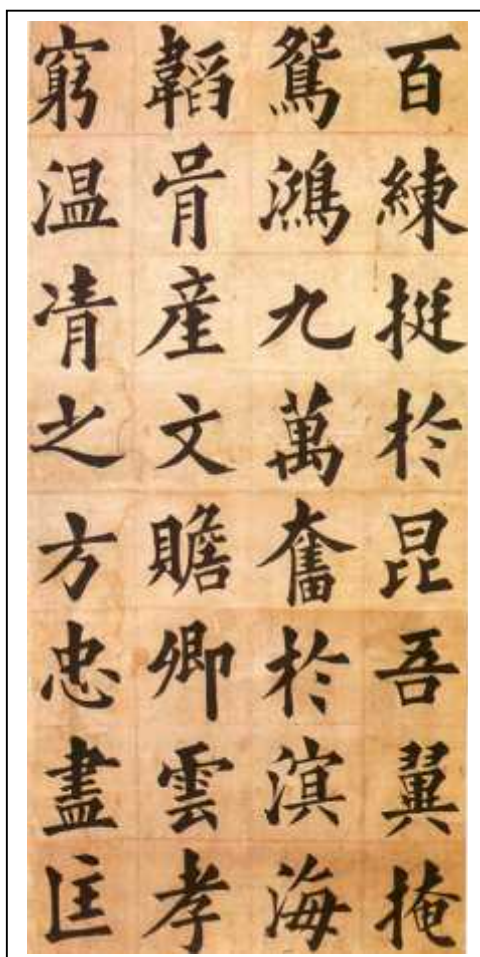 百練挺於昆吾翼掩
鴛鴻九萬奮於溟海
韜骨産文贍卿雲孝
窮温凊之方忠盡匡